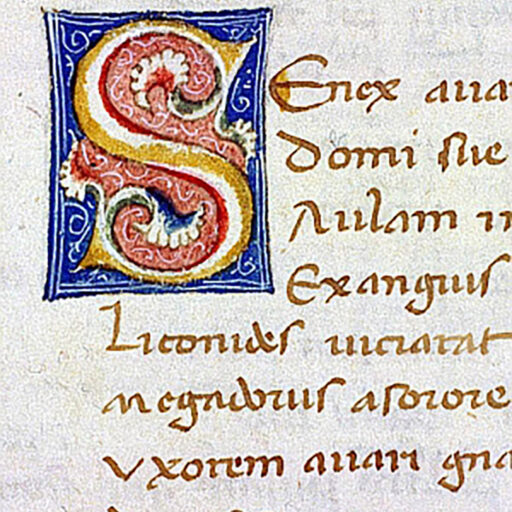 Senex aua
Domi sue
Aulam in
Exanguis
Liconides uiciarat
megadorus asorore
vxorem auari gna